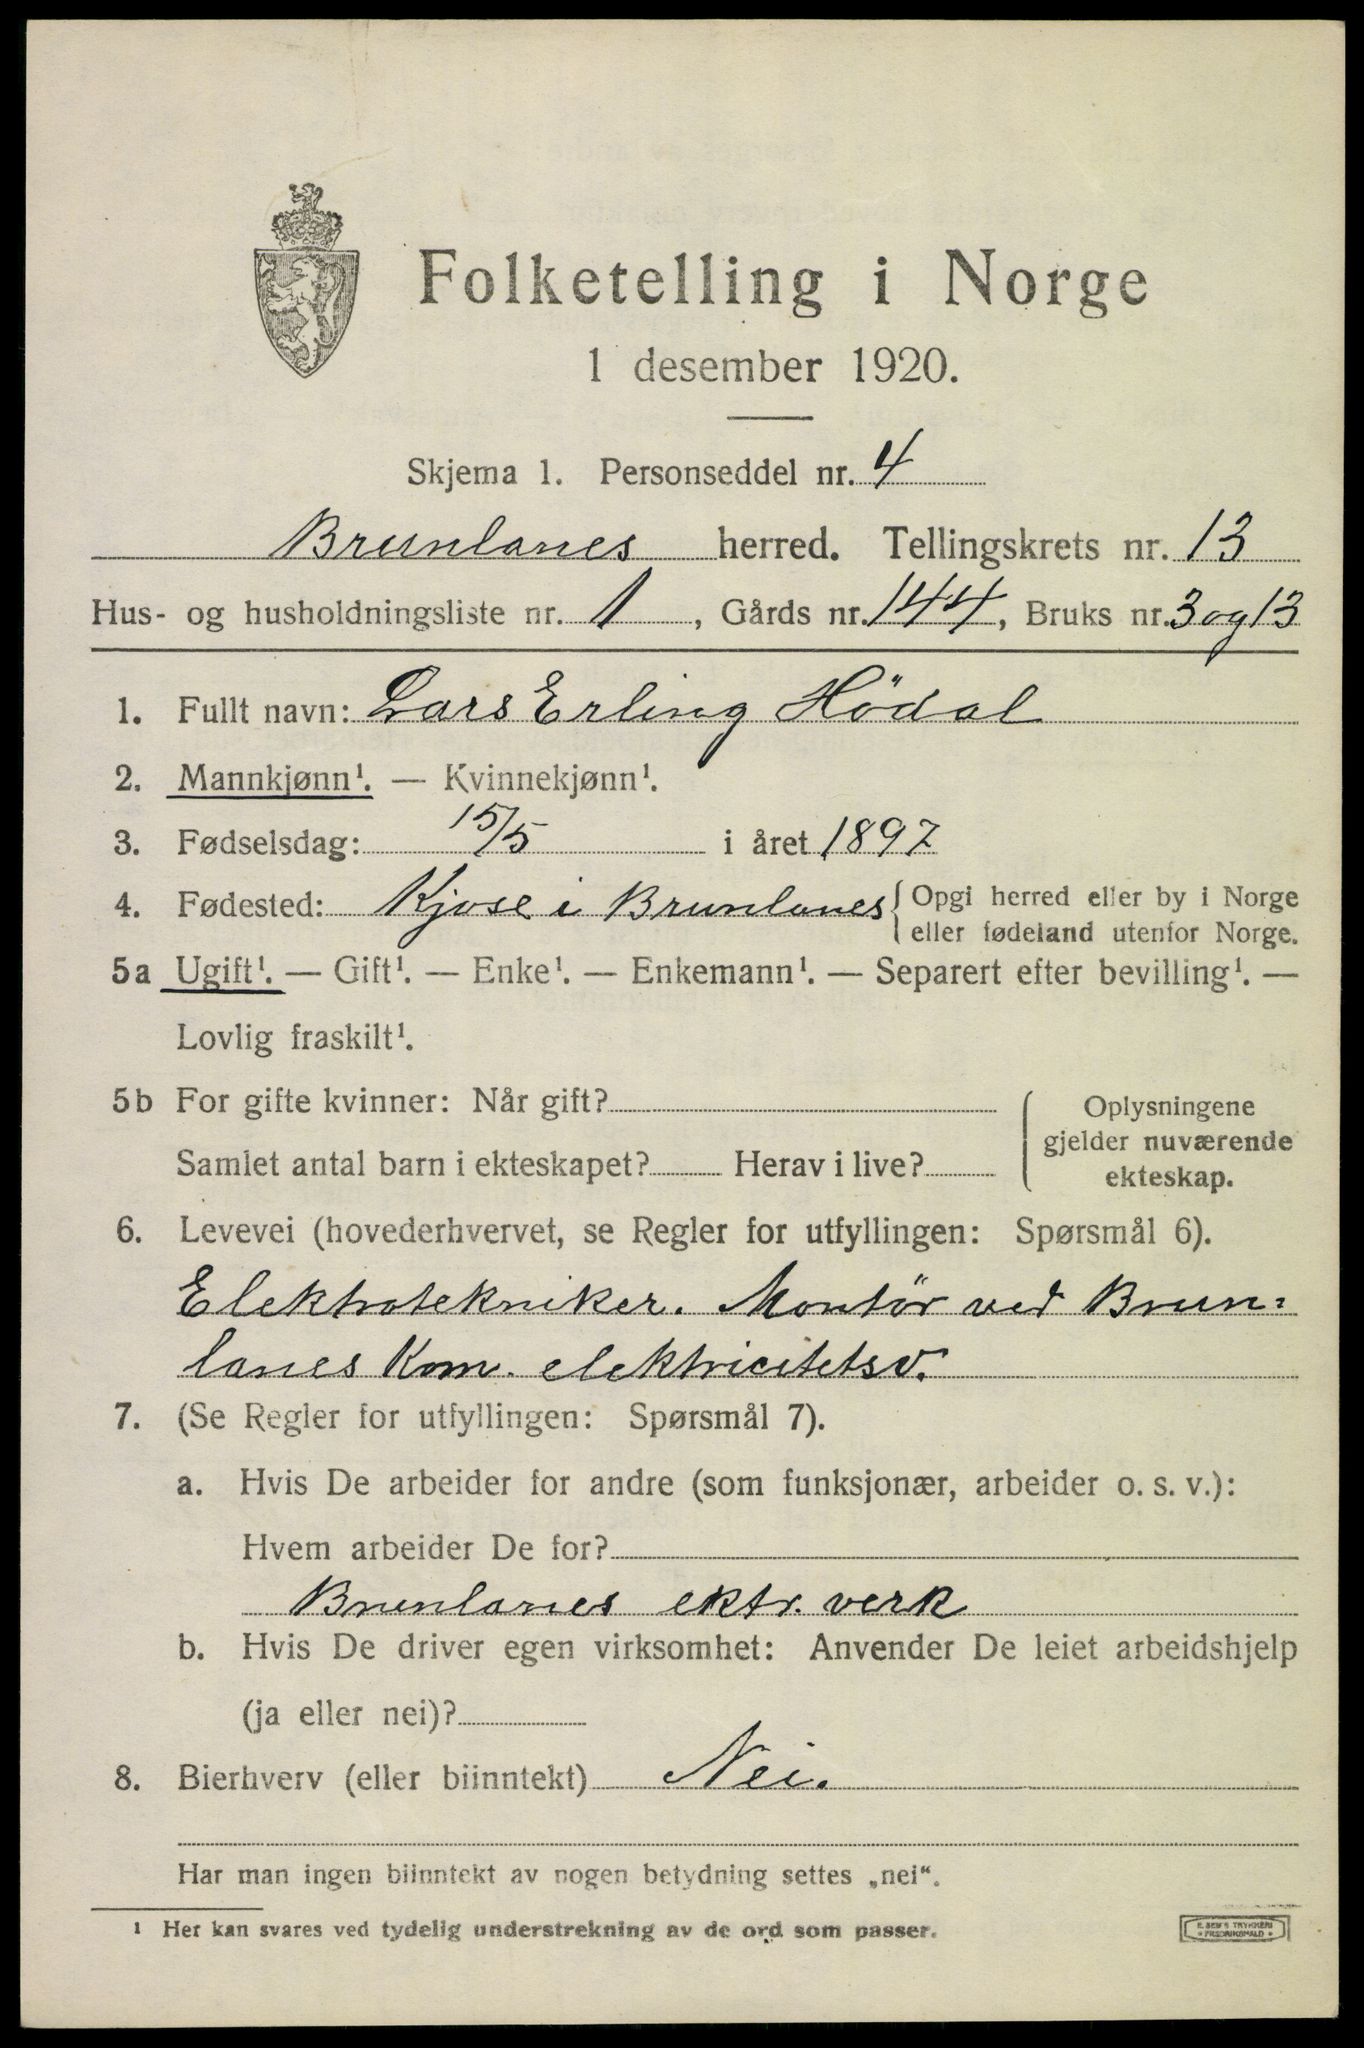 Folketelling i Norge
1 desember 1920.
Skjema 1. Personseddel nr. 4
Brunlanes herred. Tellingskrets nr. 13
Hus- og husholdningsliste nr. 1, Gårds nr. 144, Bruks nr. 3 og 13
1. Fullt navn: Lars Erling Hödal
2. Mannkjønn¹. — Kvinnekjønn¹.
3. Fødselsdag: 15/5 i året 1897
4. Fødested: Kjose i Brunlanes { Opgi herred eller by i Norge
eller fødeland utenfor Norge.
5a Ugift¹. — Gift¹. — Enke¹. — Enkemann¹. — Separert efter bevilling¹. —
Lovlig fraskilt¹.
5b For gifte kvinner: Når gift?
Samlet antal barn i ekteskapet? Herav i live?
Oplysningene
gjelder nuværende
ekteskap.
6. Levevei (hovederhvervet, se Regler for utfyllingen: Spørsmål 6).
Elektrotekniker. Montør ved Brun-
lanes Kom. elektricitetsv.
7. (Se Regler for utfyllingen: Spørsmål 7).
a. Hvis De arbeider for andre (som funksjonær, arbeider o. s. v.):
Hvem arbeider De for?
Brunlanes ektr. verk
b. Hvis De driver egen virksomhet: Anvender De leiet arbeidshjelp
(ja eller nei)?
8. Bierhverv (eller biinntekt) Nei.
Har man ingen biinntekt av nogen betydning settes „nei“.
¹ Her kan svares ved tydelig understrekning av de ord som passer.
E. SEM'S TRYKKERI
FREDRIKSHALD